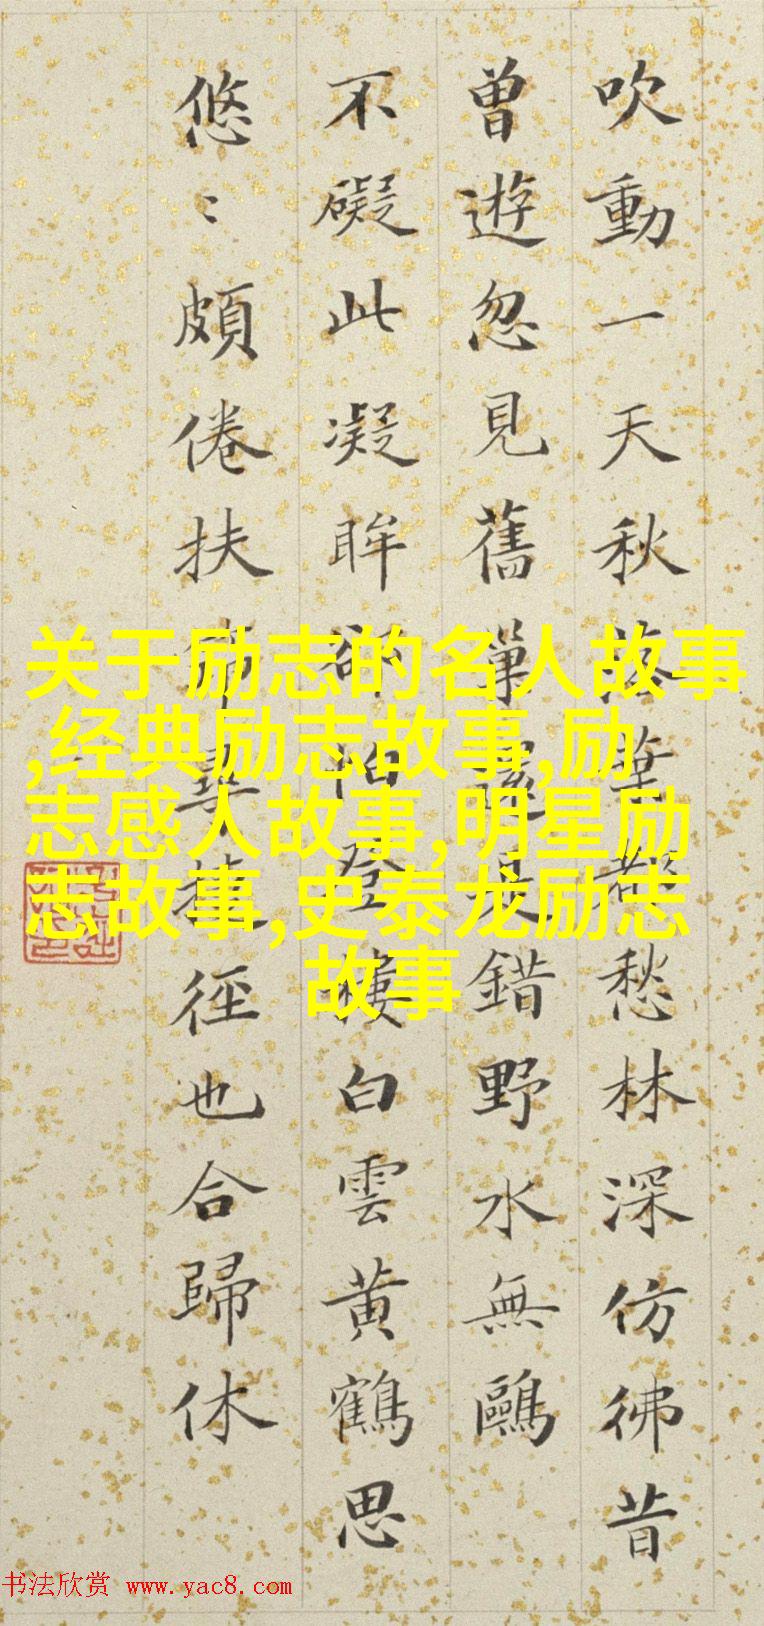 吹動一天秋落葉都愁林深仿彿昔
曾遊忽見舊巢還是錯野水無鷗
不礙此凝眸卻怕登樓白雲黃鶴思
悠〻頗倦扶筇尋捷徑也合歸休
关于励志的名人故事
,经典励志故事,励
志感人故事,明星励
志故事,史泰龙励志
故事
书法欣赏 www.yac8.com